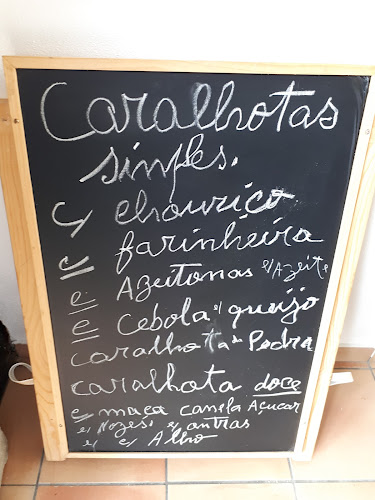 Caralhotas
simples.
c/ chouriço
c/ farinheira
c/ Azeitonas c/ Azeite
c/ Cebola c/ queijo
caralhota da Pedra
caralhota doce
c/ maça canela Açucar
c/ Nozes c/ outras
c/ c/ Alho